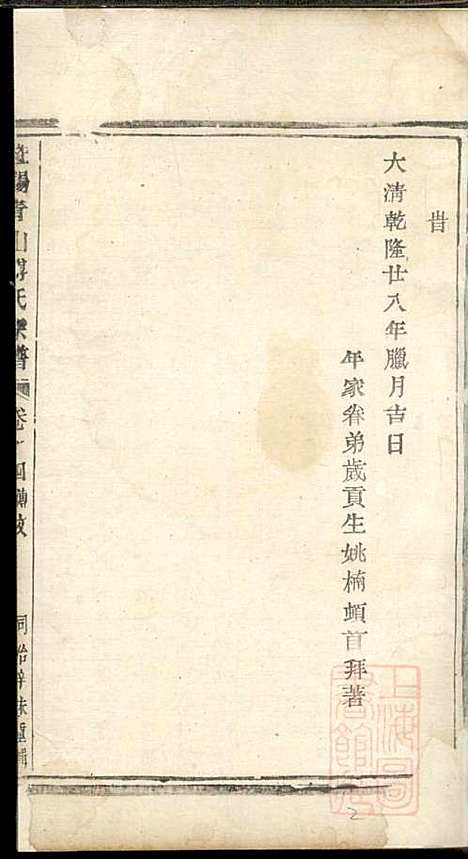 昔
大清乾隆廿八年臘月吉日
年家眷弟歲貢生姚楠頓首拜著
暨陽青山傅氏宗譜 卷一 四 傳狀
同治辛未重輯
上海圖書館藏
2